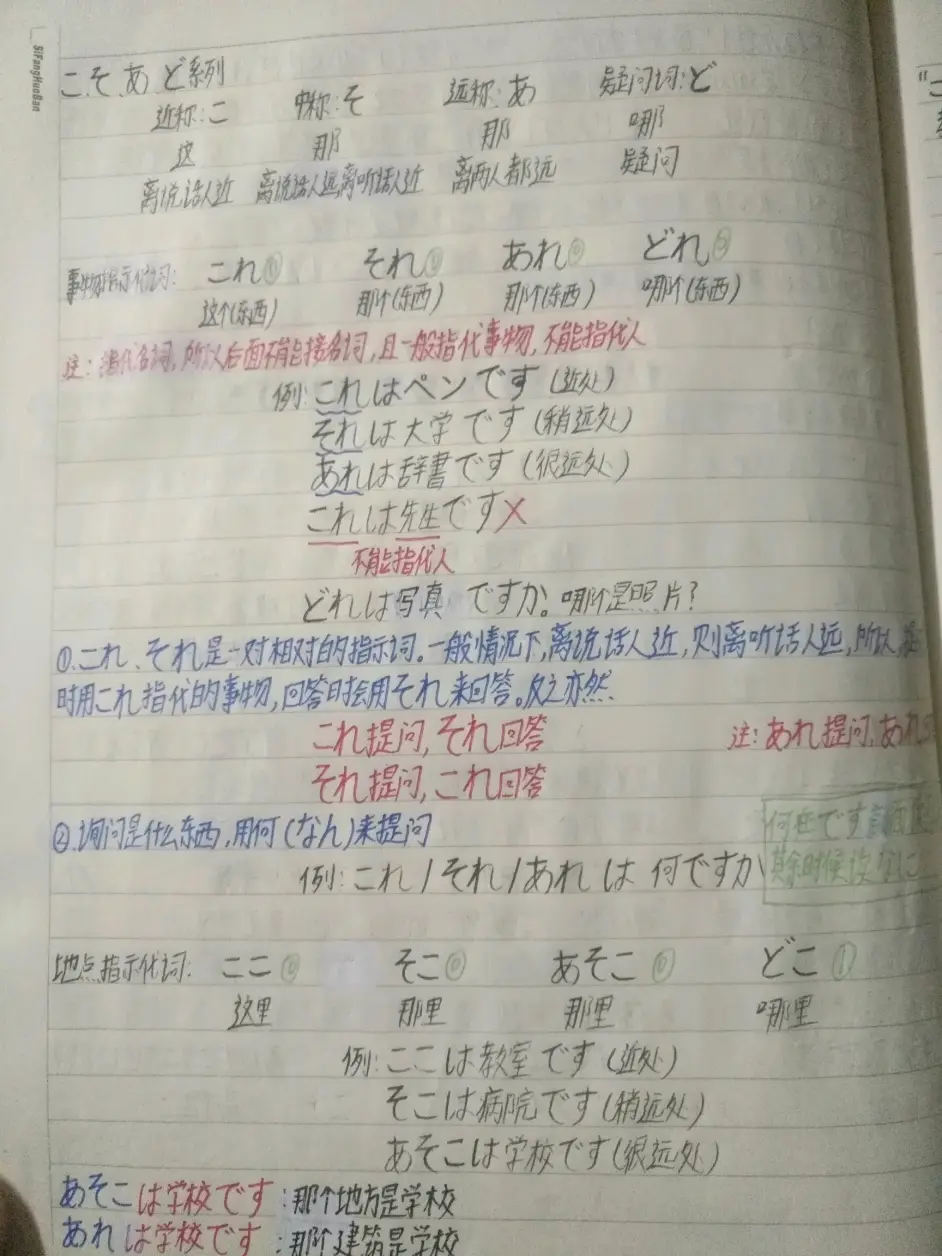 SiFangHuoBan
こ そ あ ど系列
近称:こ 中称:そ 远称:あ 疑问词:ど
这 那 那 哪
离说话人近 离说话人远,离听话人近 离两人都远 疑问
事物指示代词: これ⓪ それ⓪ あれ⓪ どれ
这个(东西) 那个(东西) 那个(东西) 哪个(东西)
注: 指代名词,所以后面不能接名词,且一般指代事物,不能指代人
例:これはペンです(近处)
それは大学です(稍远处)
あれは辞書です(很远处)
これは先生です×
不能指代人
どれは写真ですか。哪个是照片?
①.これ、それ是一对相对的指示词。一般情况下,离说话人近,则离听话人远,所以,
时用これ指代的事物,回答时会用それ来回答。反之亦然
これ提问,それ回答 注:あれ提问,あれ
それ提问,これ回答
②.询问是什么东西,用何(なん)来提问
何在です前面
例:これ/それ/あれ は 何ですか
其余时候读なに
地点指示代词: ここ⓪ そこ⓪ あそこ⓪ どこ①
这里 那里 那里 哪里
例:ここは教室です(近处)
そこは病院です(稍远处)
あそこは学校です(很远处)
あそこは学校です:那个地方是学校
あれは学校です:那个建筑是学校